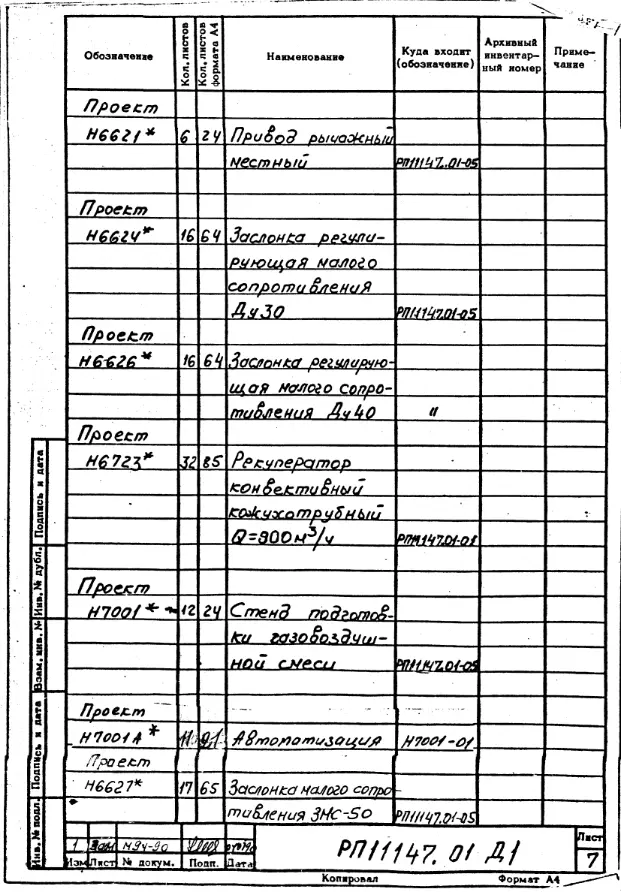 Обозначение Кол. листов Кол. листов формата А4 Наименование Куда входит (обозначение) Архивный инвентарный номер Приме-чание
Проект
Н6621* 6 24 Привод рычажный
местный РП11147.01-05
Проект
Н6624* 16 64 Заслонка регули-
рующая малого
сопротивления
Ду30 РП11147.01-05
Проект
Н6626* 16 64 Заслонка регулирую-
щая малого сопро-
тивления Ду40 "
Проект
Н6723* 32 85 Рекуператор
конвективный
кожухотрубный
Q=900м³/ч РП11147.01-01
Проект
Н7001* 12 24 Стенд подготов-
ки газовоздуш-
ной смеси РП11147.01-05
Проект
Н7001А* Автоматизация Н7001-01
Проект
Н6627* 17 65 Заслонка малого сопро-
тивления ЗМС-50 РП11147.01-05
Инв. № подл. Подпись и дата Взам. инв. № Инв. № дубл. Подпись и дата
1 Зам Н94-90
Изм Лист № докум. Подп. Дата
РП11147.01 Д1
Лист
7
Копировал Формат А4